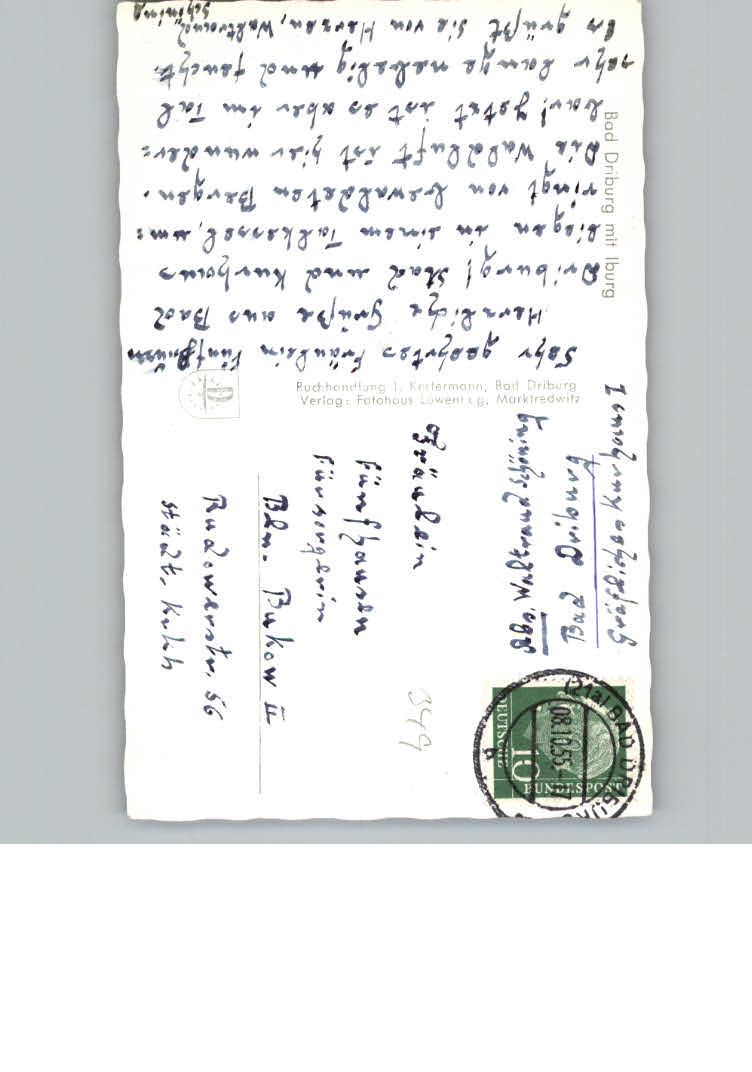 Sehr geehrtes Fräulein Fünfhausen
Herzliche Grüße aus Bad
Driburg! Stadt und Kurhaus
liegen in einem Talkessel, um=
ringt von bewaldeten Bergen.
Die Waldluft ist hier wunder=
bar! Jetzt ist es aber im Tal
sehr lange nebelig und feucht.
Es grüßt Sie von Herzen, Waltraud
Schöning
Bad Driburg mit Iburg
Buchhandlung J. Kestermann, Bad Driburg
Verlag: Fotohaus Löwenhag, Marktredwitz
Abs. Waltraud Schöning
Bad Driburg
Gräfliches Kurhaus
Fräulein
Fünfhausen
Fürsorgerin
Bln. Bukow II
Rudowerstr. 56
städt. Krhh
349
DEUTSCHE
BUNDESPOST
10
(21a) BAD DRIBURG
08.10.55.-17